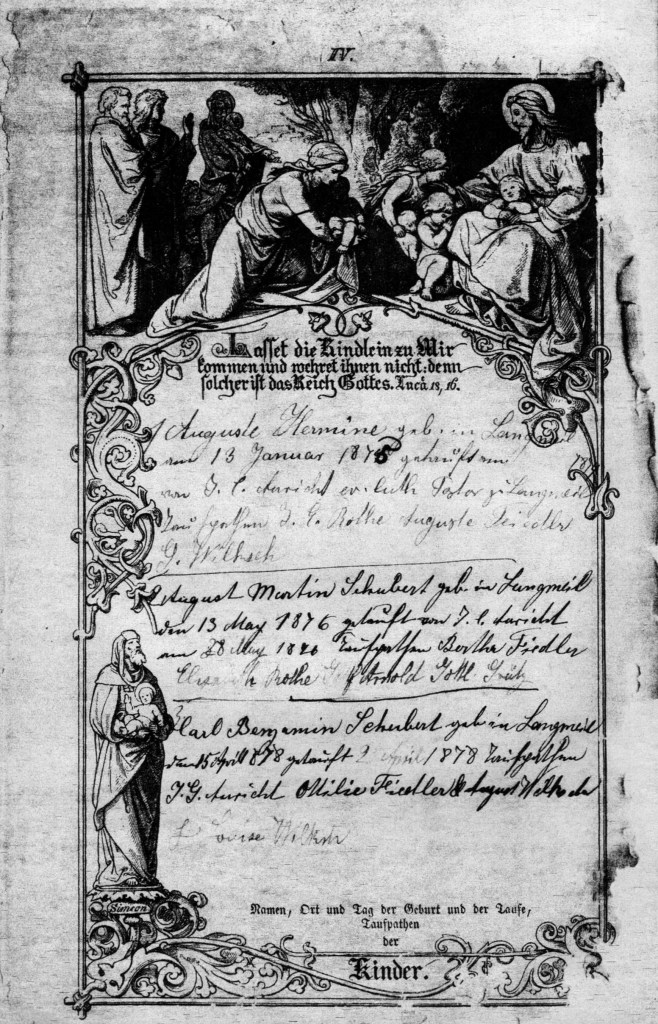 IV.
Lasset die Kindlein zu Mir
kommen und wehret ihnen nicht: denn
solcher ist das Reich Gottes. Lucä 18, 16.
1 Auguste Hermine geb. in Langmeil
am 13 Januar 1875 getauft am 187
von J. C. Auricht ev. luth Pastor zu Langmeil
Taufpathen J. E. Rothe Auguste Fiedler
G. Wilksch
2 August Martin Schubert geb in Langmeil
den 13 May 1876 getauft von J. C. Auricht
am 28 May 1876 Taufpathen Bertha Fiedler
Elisabeth Rothe Arnold Gottl.
Karl Benjamin Schubert geb in Langmeil
den 15 April 1878 getauft 2 April 1878 Taufpathen
J. G. Auricht Ottilie Fiedler & August
Louise Wilksch
Simeon
Namen, Ort und Tag der Geburt und der Taufe,
Taufpathen
der
Kinder.